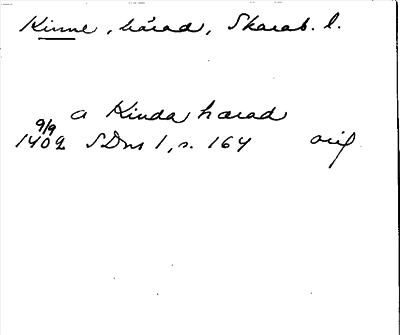 Kinne, härad, Skarab. l.
a Kinda hærad
9/9
1402 SDns 1, s. 164 orig